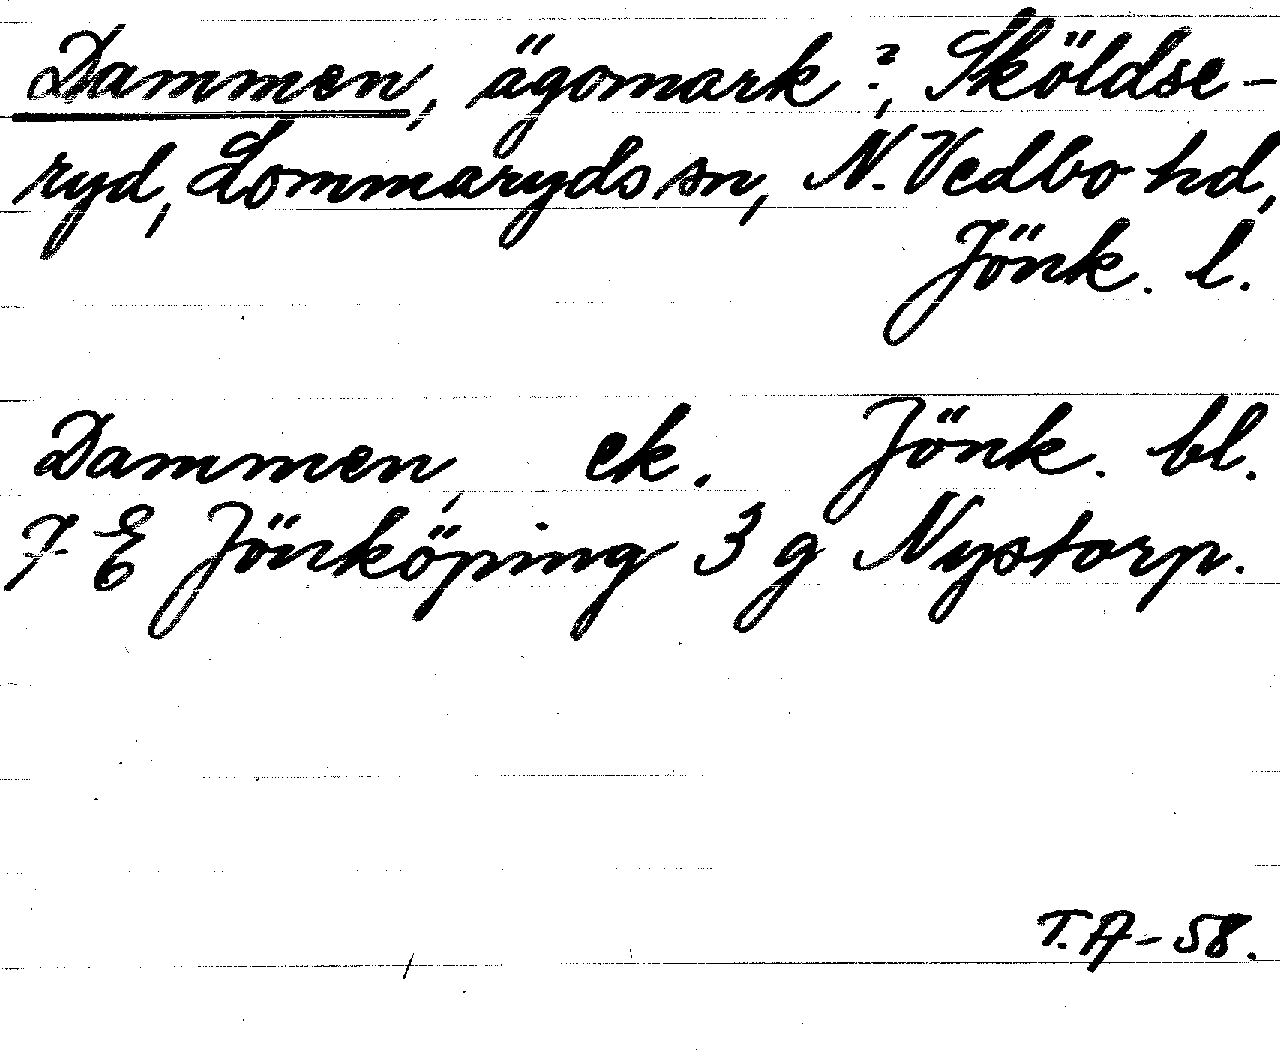 Dammen, ägomark?, Sköldse-
ryd, Lommaryds sn, N. Vedbo hd,
Jönk. l.
Dammen, ek. Jönk. bl.
7 E Jönköping 3 g Nystorp.
T.A-58.